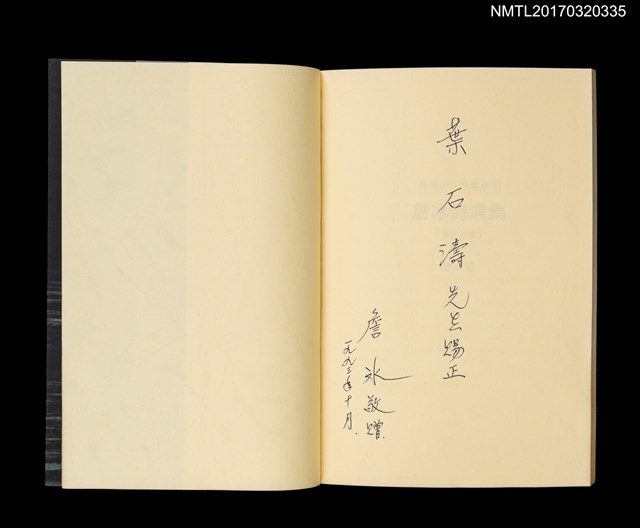 NMTL20170320335
葉石濤先生賜正
詹冰敬贈
一九九三年十月.